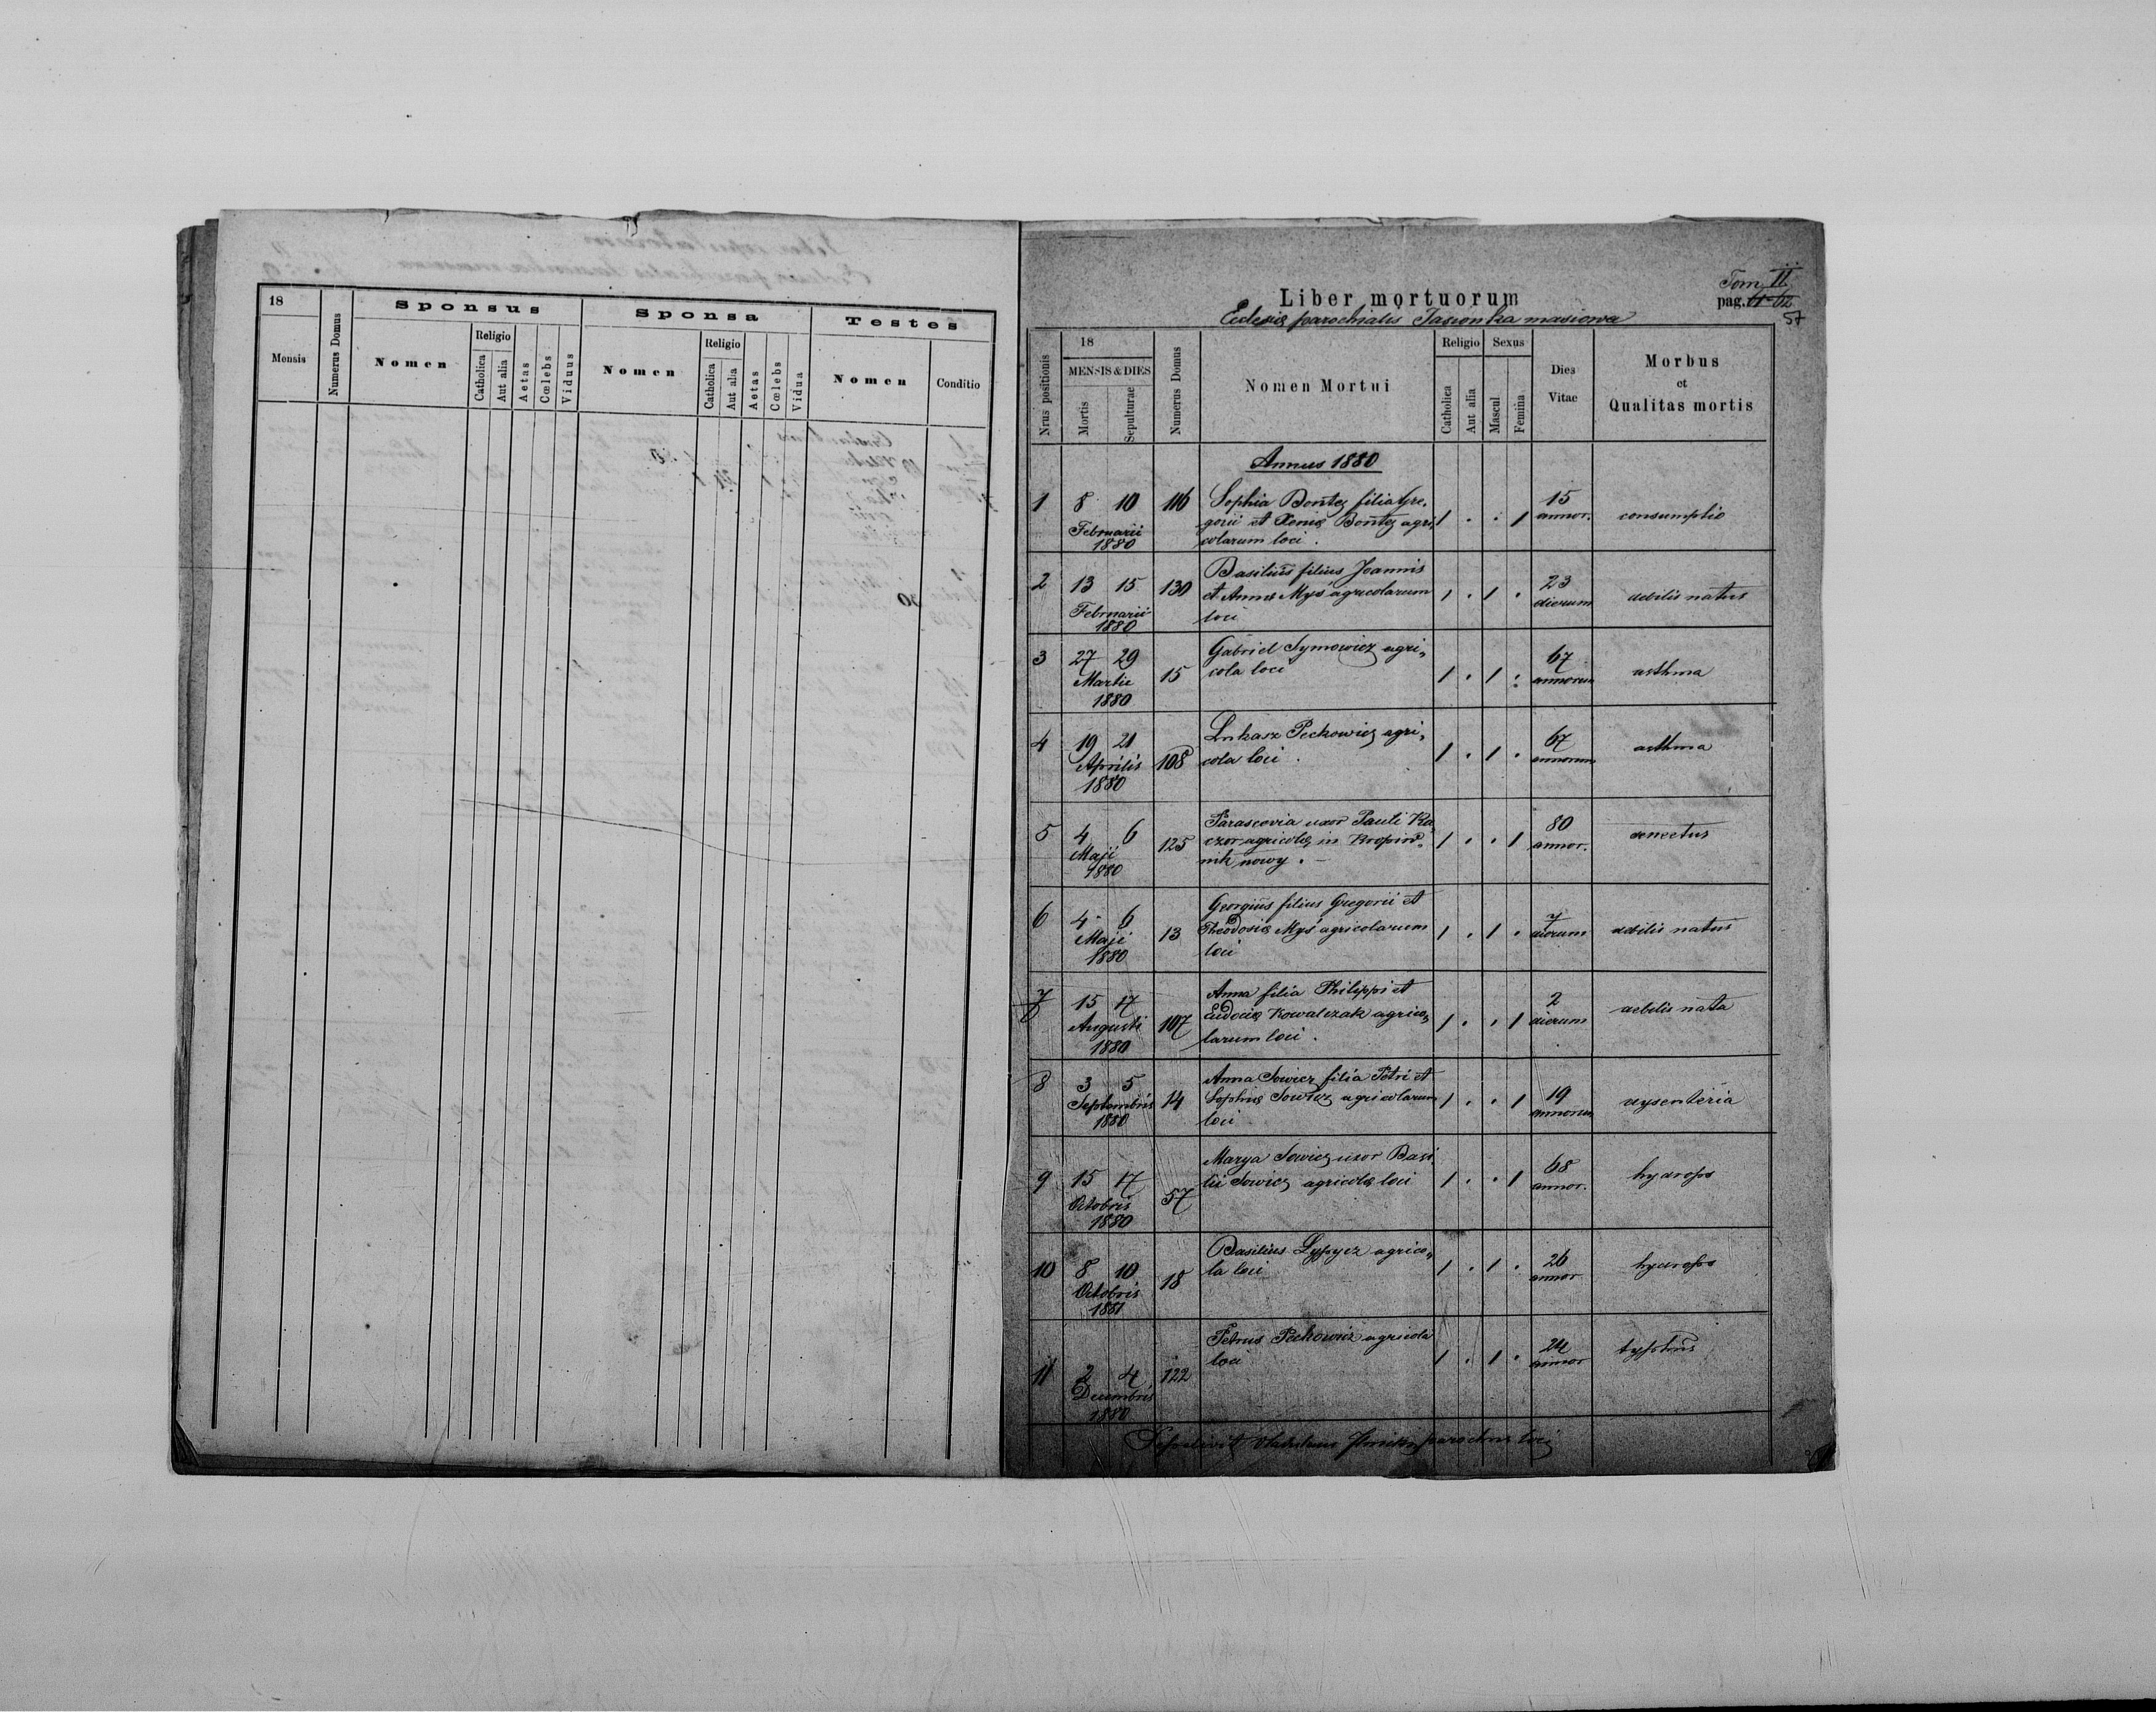 18
Sponsus
Sponsa
Testes
Mensis
Numerus Domus
Nomen
Religio
Catholica
Aut alia
Aetas
Cœlebs
Viduus
Nomen
Religio
Catholica
Aut alia
Aetas
Cœlebs
Vidua
Nomen
Conditio
Tom II
Liber mortuorum
pag.
57
Ecclesiæ parochialis Jasionka masiowa
Nrus positionis
18
MENSIS & DIES
Mortis
Sepulturae
Numerus Domus
Nomen Mortui
Religio
Catholica
Aut alia
Sexus
Mascul
Femina
Dies
Vitae
Morbus
et
Qualitas mortis
Annus 1880
1 8 10 Februarii 1880 116
Sophia Bontez filia Gre,
gorii et Xeniæ Bontez agri,
colarum loci.
1 . . 1 15 annor. consumptio
2 13 15 Februarii 1880 130
Basilius filius Joannis
et Annæ Myś agricolarum
loci
1 . 1 . 23 dierum debilis natus
3 27 29 Martii 1880 15
Gabriel Symowicz agri,,
cola loci
1 . 1 . 67 annorum asthma
4 19 21 Aprilis 1880 108
Lukasz Peckowicz agri,,
cola loci.
1 . 1 . 67 annorum asthma
5 4 6 Maji 1880 125
Parascevia uxor Pauli Ka,
czor agricolæ in Kropiw,
nik nowy. –
1 . . 1 80 annor. senectus
6 4 6 Maji 1880 13
Georgius filius Gregorii et
Theodosiæ Myś agricolarum
loci
1 . 1 . 7 dierum debilis natus
7 15 17 Augusti 1880 107
Anna filia Philippi et
Eudociæ Kowalczak agrico,,
larum loci.
1 . . 1 2 dierum debilis nata
8 3 5 Septembris 1880 14
Anna Sowicz filia Petri et
Sophiæ Sowicz agricolarum
loci
1 . . 1 19 annorum dysenteria
9 15 17 Octobris 1880 57
Marya Sowicz uxor Basi,
lii Sowicz agricolæ loci
1 . . 1 68 annor. hydrops
10 8 10 Octobris 18
Basilius Lypycz agrico,,
la loci
1 . 1 . 26 annor hydrops
11 2 4 Decembris 1880 122
Petrus Peckowicz agricola
loci
1 . 1 . 24 annor typhus
Sepelivit parochus loci